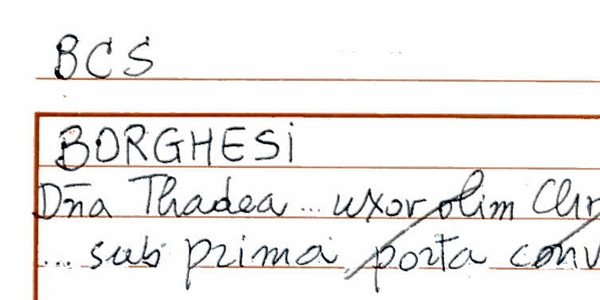 BCS
BORGHESI
Dña Thadea ... uxor olim
... sub prima porta